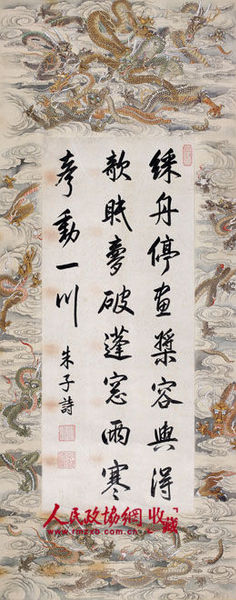 綵舟停畫槳容與得
欹眠夢破蓬窓雨寒
聲動一川
朱子詩
人民政協網 收藏
www.rmzxb.com.cn